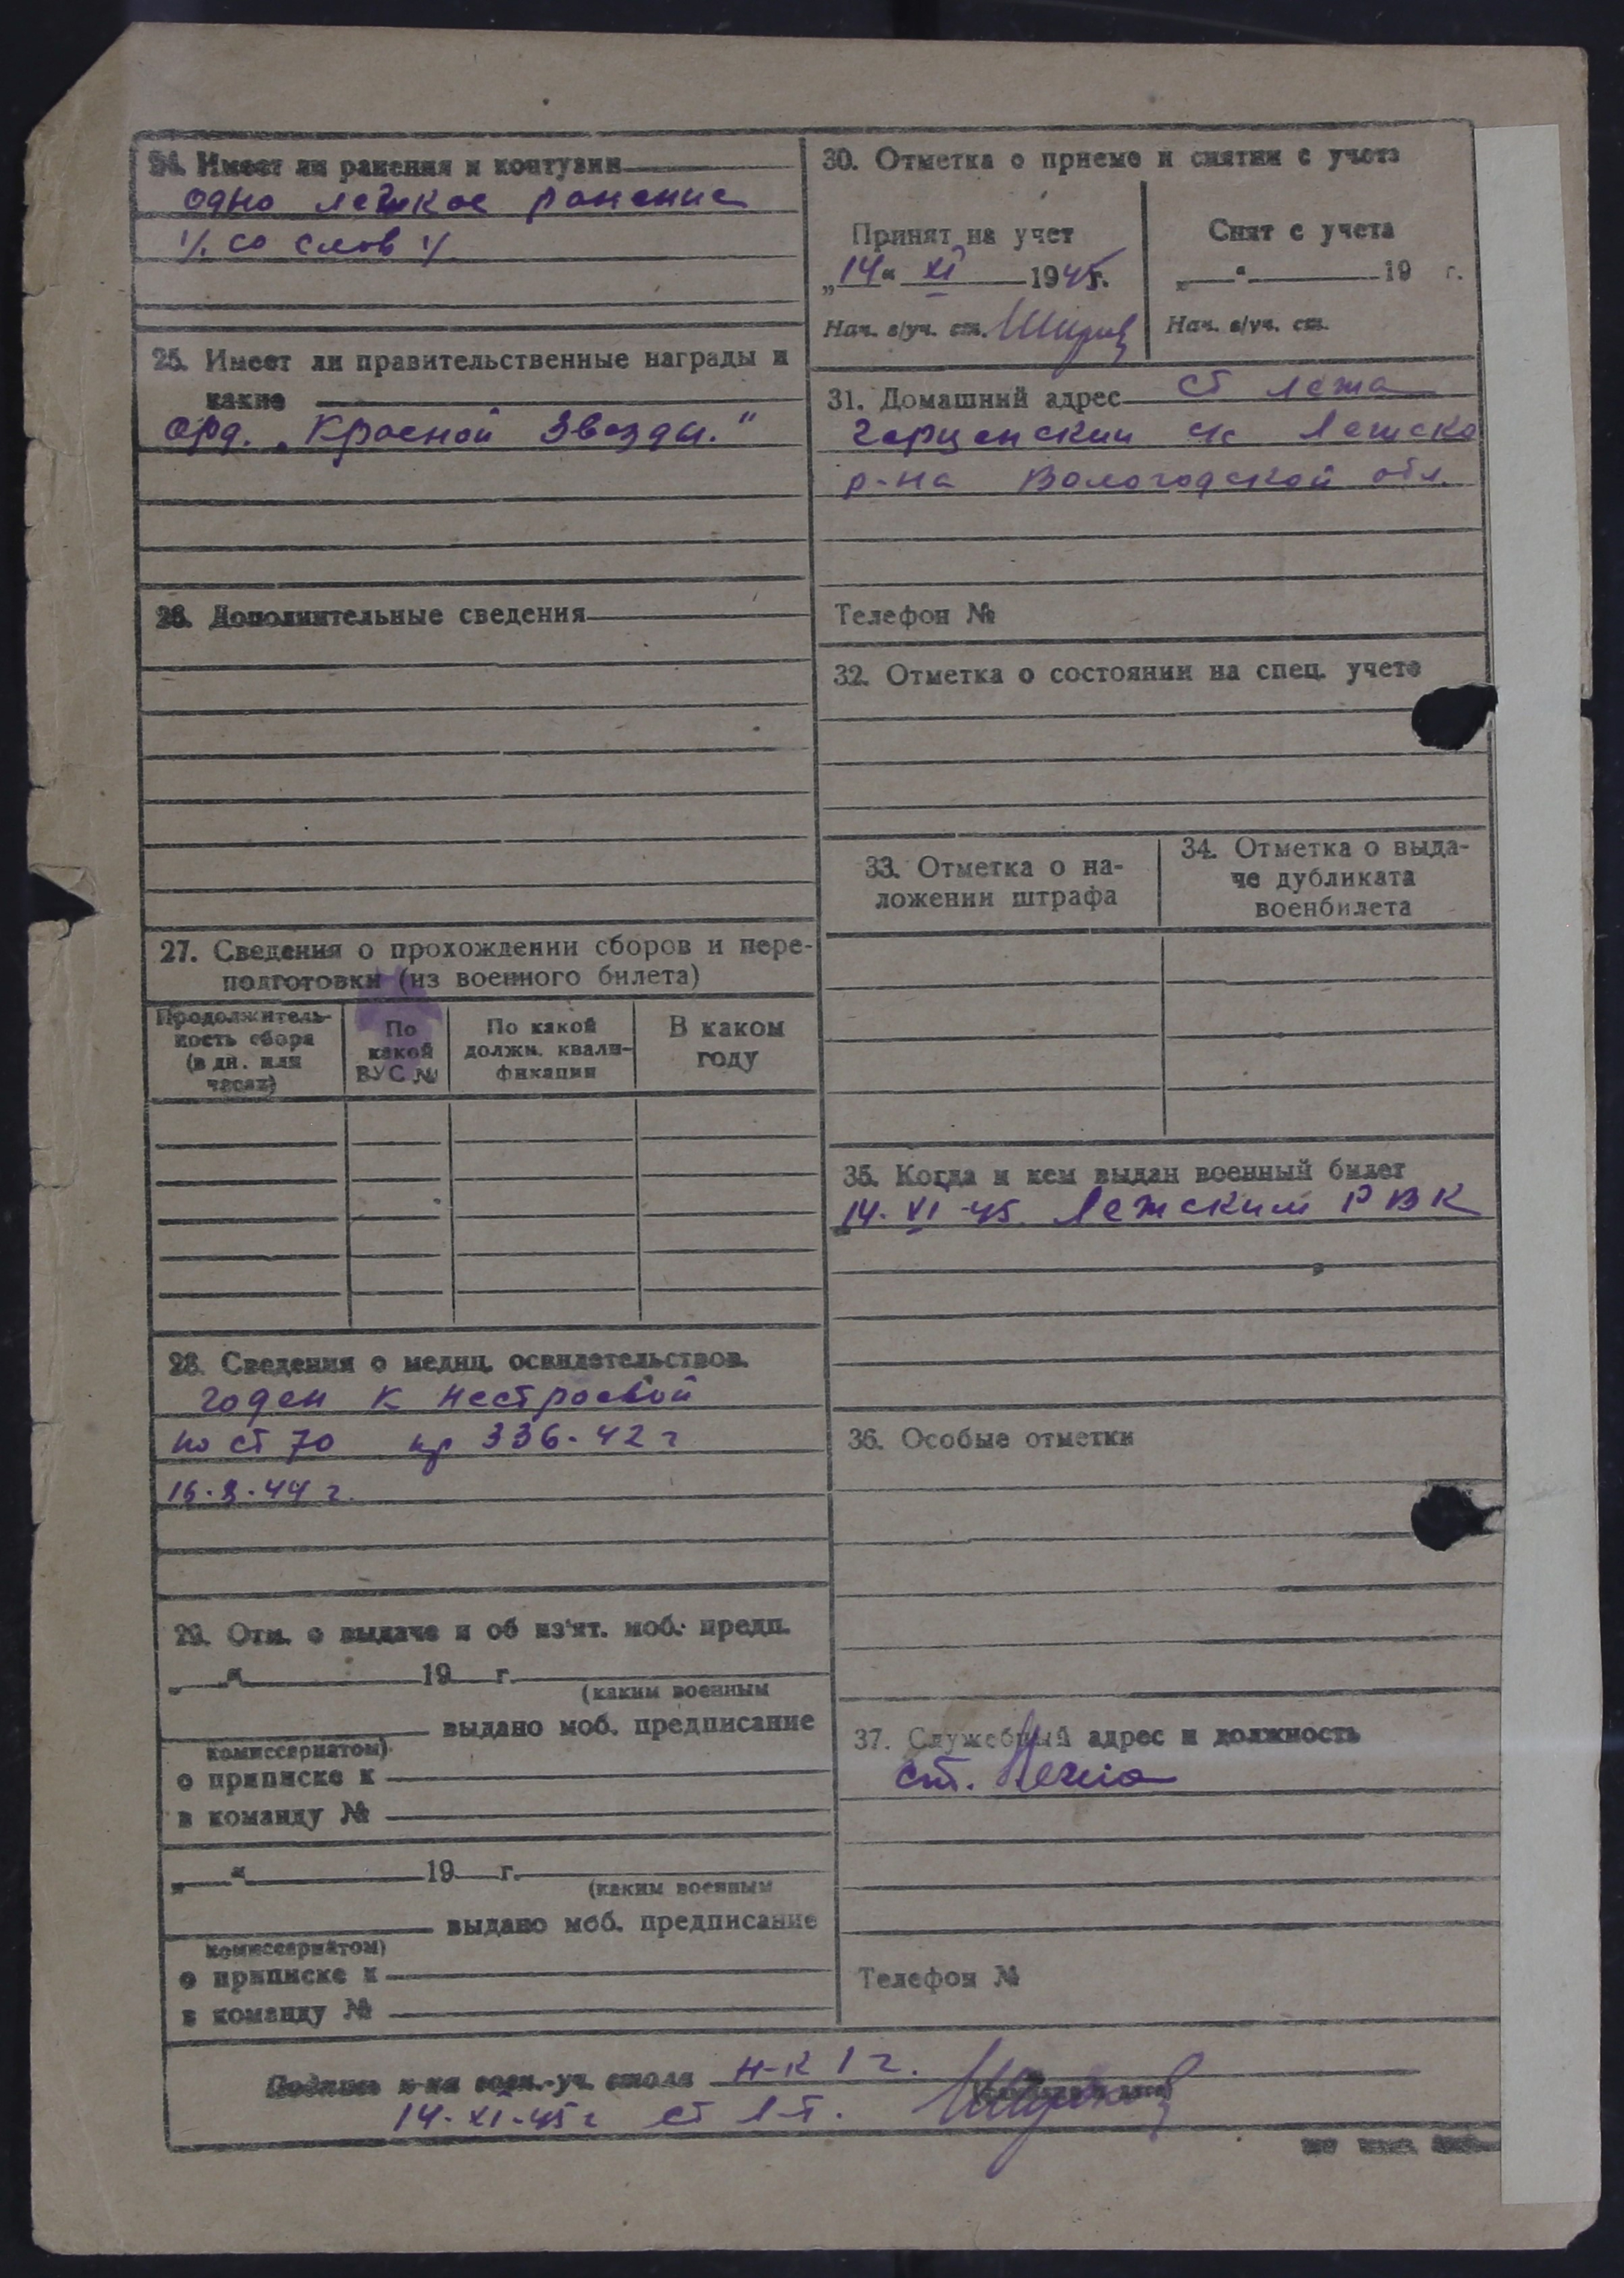 24. Имеет ли ранения и контузии
одно легкое ранение
/. со слов /
25. Имеет ли правительственные награды и
какие
орд. „Красной Звезды."
26. Дополнительные сведения
27. Сведения о прохождении сборов и пере-
подготовки (из военного билета)
Продолжитель-
ность сбора
(в дн. или
часах)
По
какой
ВУС №
По какой
должн. квали-
фикации
В каком
году
28. Сведения о медиц. освидетельствов.
годен к нестроевой
по ст 70 пр 336-42 г
44 г.
29. Отм. о выдаче и об из'ят. моб. предп.
„ " 19 г.
(каким военным
выдано моб. предписание
комиссариатом)
о приписке к
в команду №
„ " 19 г.
(каким военным
выдано моб. предписание
комиссариатом)
о приписке к
в команду №
30. Отметка о приеме и снятии с учета
Принят на учет
„14" XI 1945г.
Нач. в/уч. ст.
Снят с учета
„ " 19 г.
Нач. в/уч. ст.
31. Домашний адрес ст Лежа
с/с Лежско
р-на Вологодской обл.
Телефон №
32. Отметка о состоянии на спец. учете
33. Отметка о на-
ложении штрафа
34. Отметка о выда-
че дубликата
военбилета
35. Когда и кем выдан военный билет
14-XI-45. Лежским РВК
36. Особые отметки
37. Служебный адрес и должность
ст. Лежа
Телефон №
Подпись н-ка воен.-уч. стола н-к 1 г.
14-XI-45 г ст л-т.